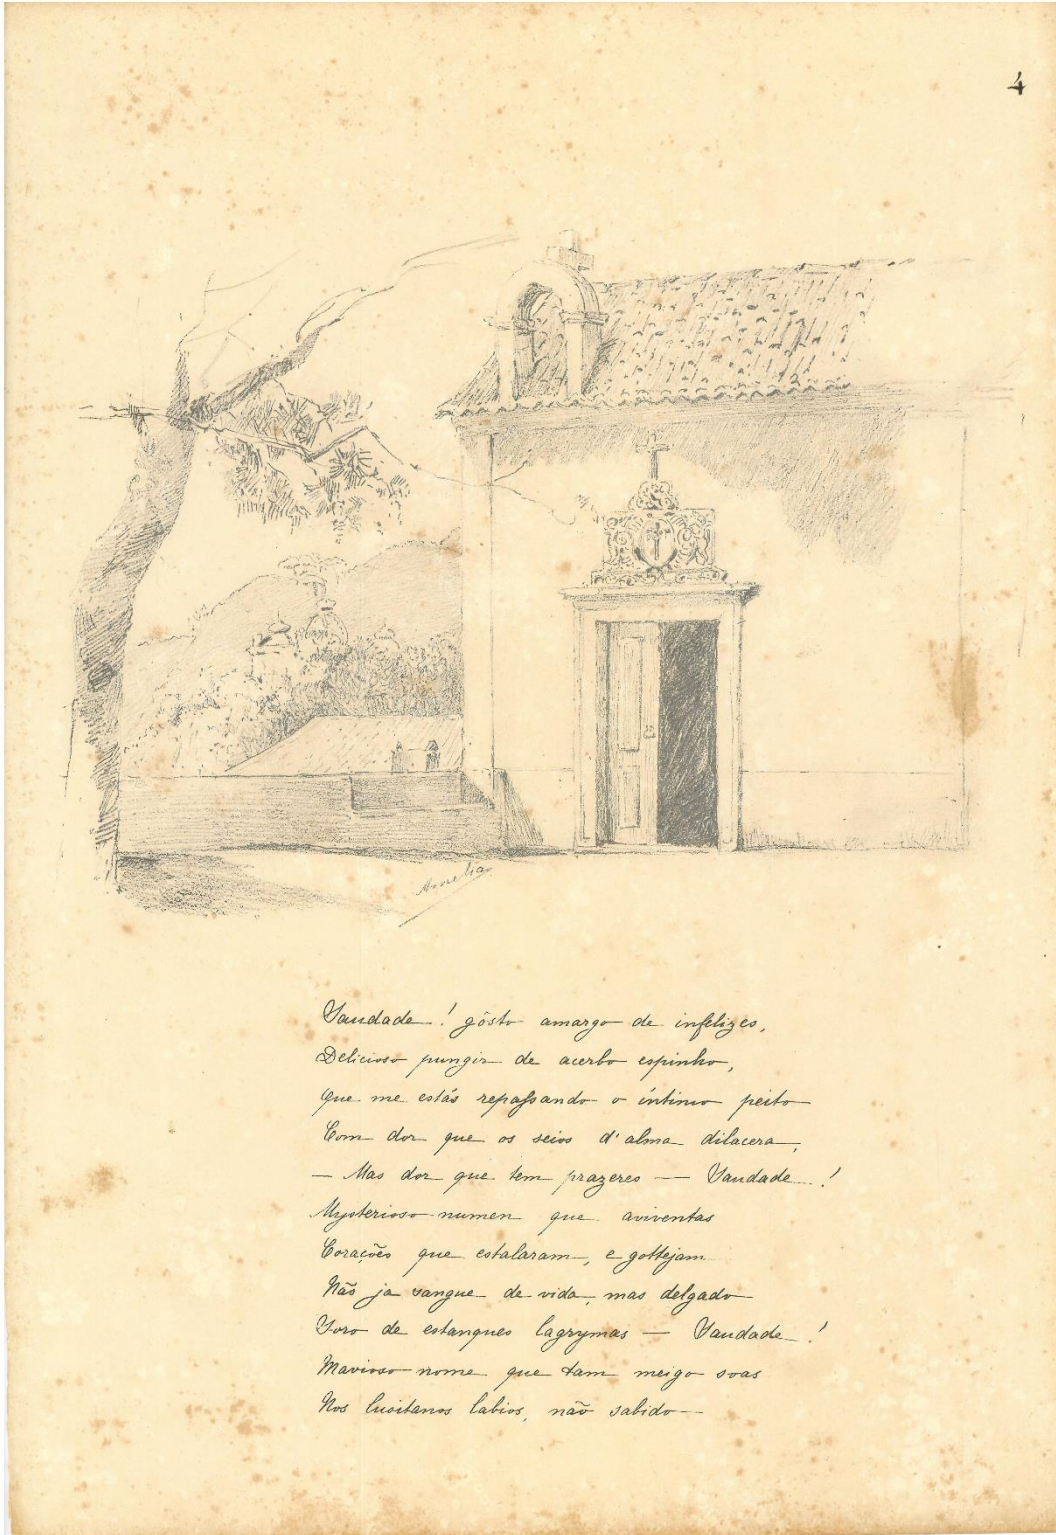 4
Amelia
Saudade! gôsto amargo de infelizes,
Delicioso pungir de acerbo espinho,
Que me estás repassando o íntimo peito
Com dor que os seios d'alma dilacera,
— Mas dor que tem prazeres — Saudade!
Mysterioso numen que aviventas
Corações que estalaram, e gottejam
Não ja sangue de vida, mas delgado
Soro de estanques lagrymas — Saudade!
Mavioso nome que tam meigo soas
Nos lusitanos labios, não sabido